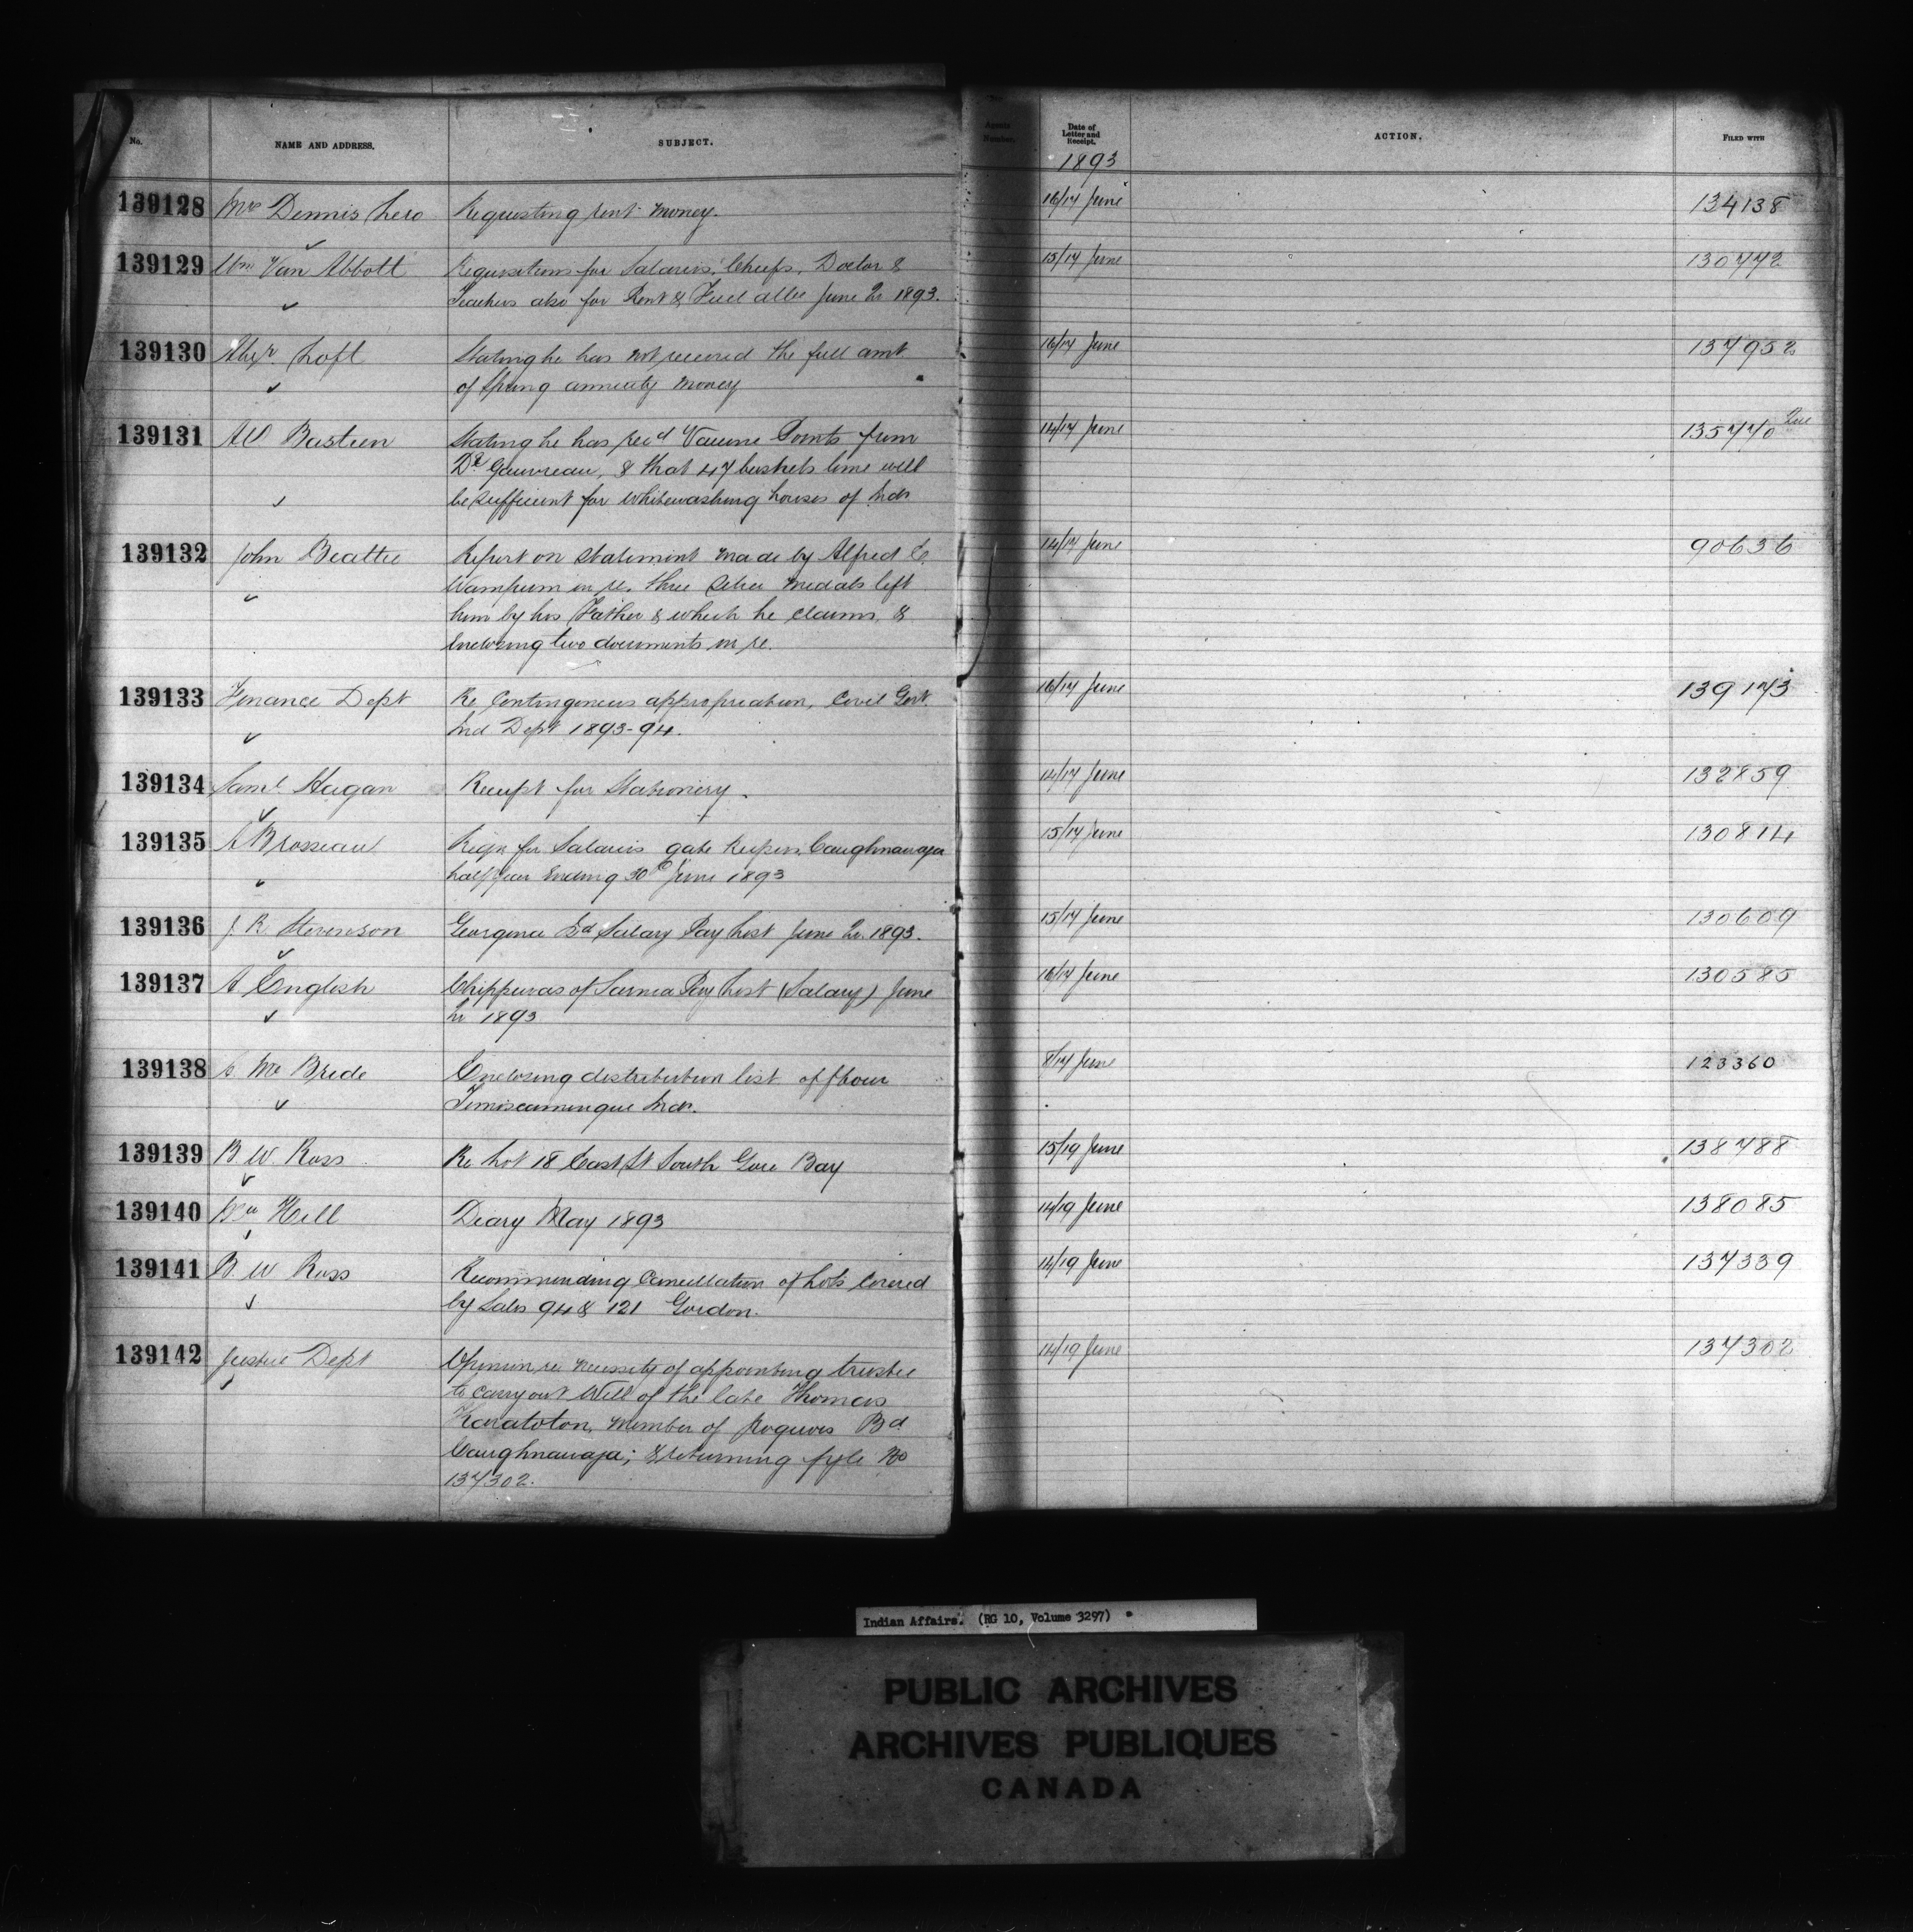 No. NAME AND ADDRESS. SUBJECT. Agents Number. Date of Letter and Receipt. ACTION. FILED WITH
1893
139128 Mrs Dennis Lero Requesting rent money. 16/17 June 134138
139129 Wm Van Abbott Requisitions for Salaries, Chiefs, Doctor & 15/17 June 130772
Teachers also for Rent & Fuel allce June Qr 1893.
139130 Alexr. Loft Stating he has not received the full amt 16/17 June 137952
of Spring annuity money
139131 AO Bastien Stating he has recd Vaccine Points from 14/17 June 135770 Que
Dr Gauvreau, & that 47 bushels lime will
be sufficient for whitewashing houses of Inds
139132 John Beattie Report on statement made by Alfred E. 14/17 June 90636
Wampum in re. three Silver medals left
him by his Father & which he claims, &
Enclosing two documents in re.
139133 Finance Dept Re Contingencies appropriation, Civil Govt. 16/17 June 139173
Ind Dept 1893-94.
139134 Saml Hagan Receipt for Stationery. 14/17 June 132859
139135 A Brosseau Reqn for Salaries gate Keepers, Caughnawaga 15/17 June 130814
half year Ending 30th June 1893
139136 J R Stevenson Georgina Bd Salary Pay List June Qr. 1893. 15/17 June 130609
139137 A English Chippewas of Sarnia Pay List (Salary) June 16/17 June 130585
Qr 1893
139138 A. Mc Bride Enclosing distribution list of flour 8/17 June 123360
Temiscamingue Inds.
139139 B. W. Ross Re Lot 18 East St South Gore Bay 15/19 June 138788
139140 Hill Diary May 1893 14/19 June 138085
139141 B. W Ross Recommending Cancellation of Lots Covered 14/19 June 137339
by Sales 94 & 121 Gordon.
139142 Justice Dept Opinion re necessity of appointing trustee 14/19 June 137302
to carry out Will of the late Thomas
Karatoton, Member of Iroquois Bd
Caughnawaga; & returning fyle No
137302.
Indian Affairs. (RG 10, Volume 3297)
PUBLIC ARCHIVES
ARCHIVES PUBLIQUES
CANADA